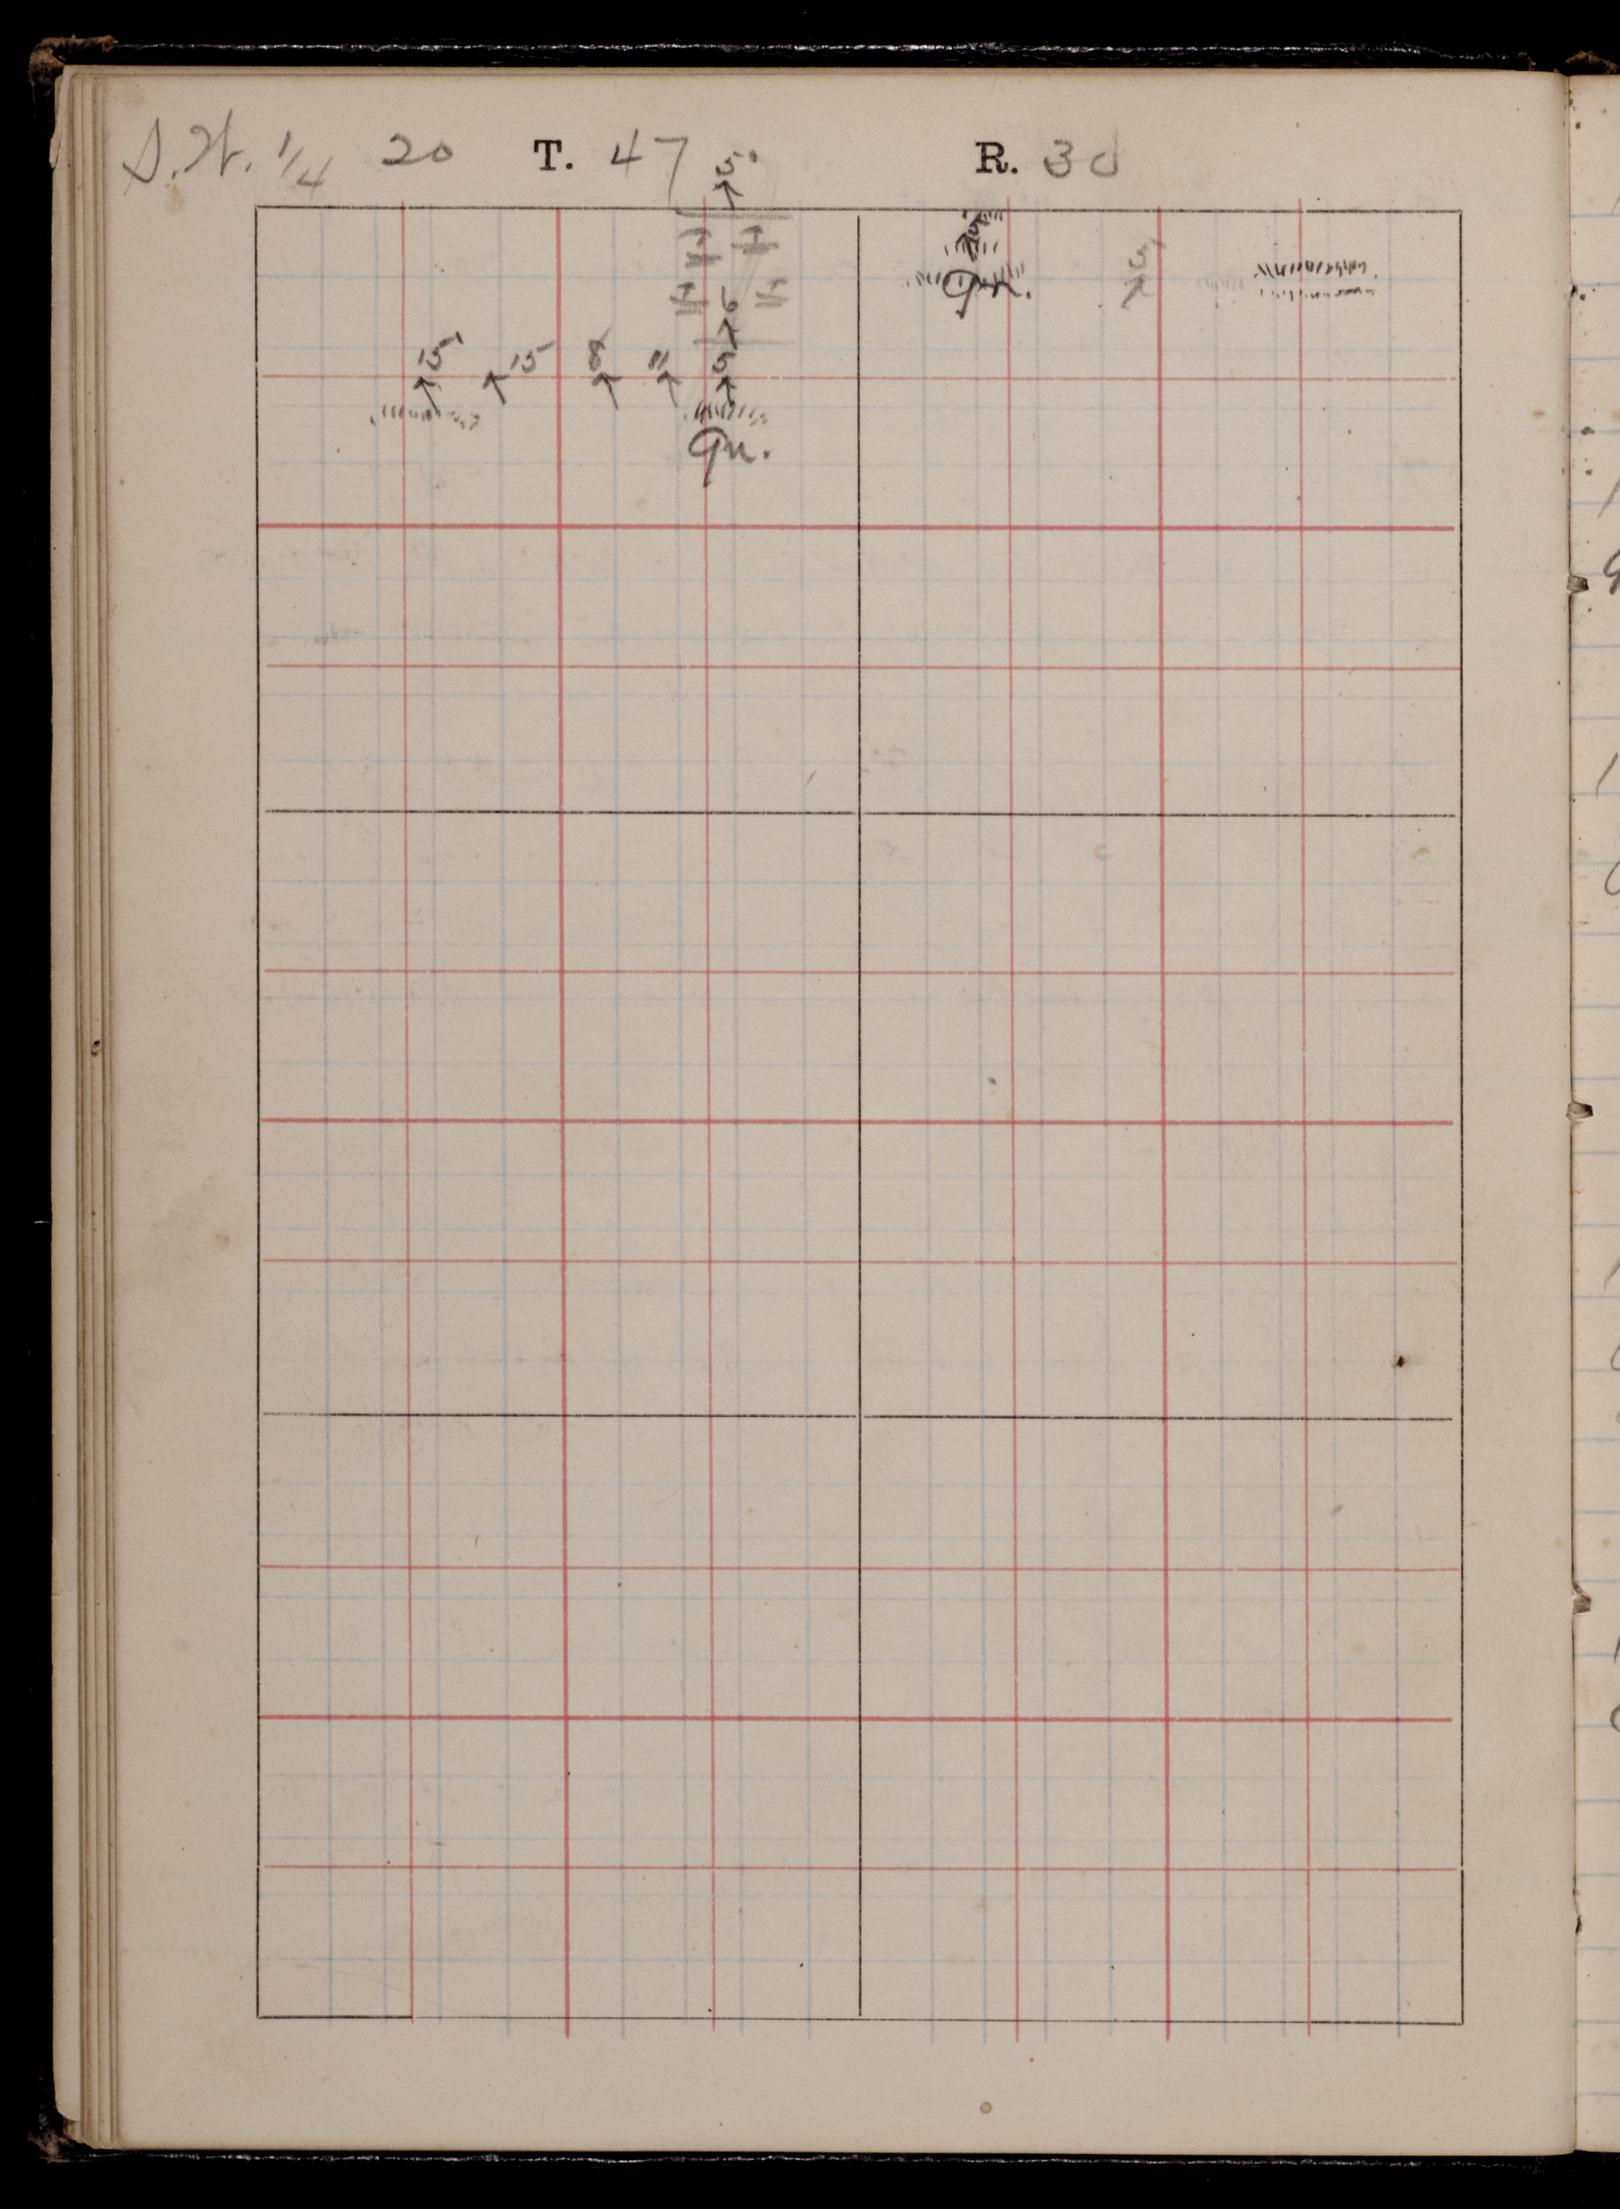 S.W. 1/4 20 T. 47 R. 30
5°
5
6 5
15' 15 8 11 5
gn. gn.